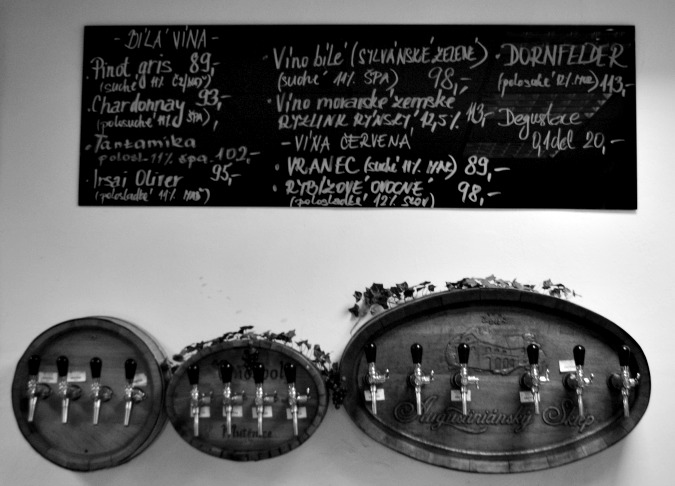 - BÍLÁ VÍNA -
Pinot gris 89,-
(suché 11%
Chardonnay 93,-
(polosuché 11% ŠPA)
Tanzamika
polosl. 11% špa. 102,-
Irsai Oliver 95,-
(polosladké 11% MAĎ)
Víno bílé (SYLVÁNSKÉ ZELENÉ)
(suché 11% ŠPA) 98,-
Víno moravské zemské
RYZLINK RÝNSKÝ 12,5% 113,-
- VÍNA ČERVENÁ
VRANEC (suché 11% MAK) 89,-
RYBÍZOVÉ OVOCNÉ 98,-
(polosladké 12% SLOV)
DORNFELDER
(polosuché 12% 113,-
Degustace
0,1 del 20,-
Augustiniánský Sklep